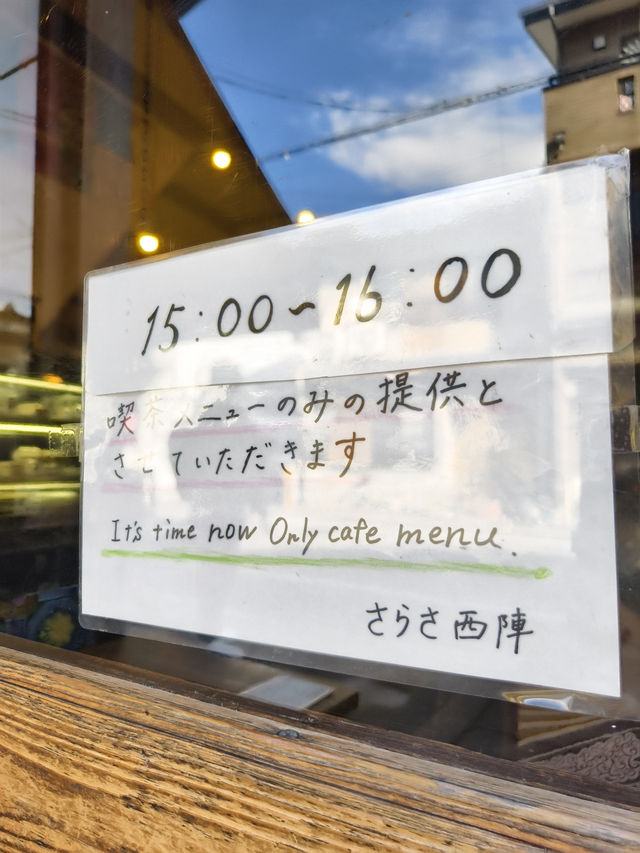 15:00~16:00
喫茶メニューのみの提供と
させていただきます
It's time now Only cafe menu.
さらさ西陣